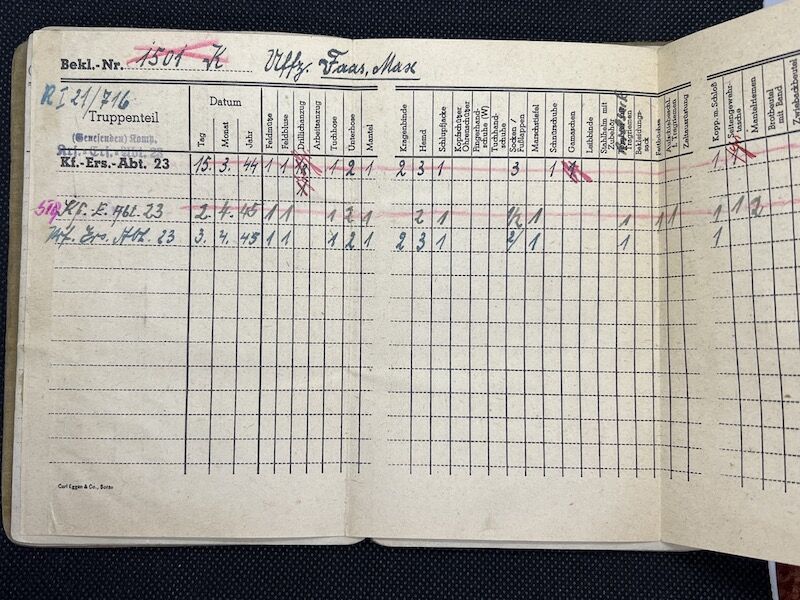 Bekl.-Nr. 1501 K Uffz. Faas, Max
R I 21/716
Truppenteil
Datum
Tag Monat Jahr Feldmütze Feldbluse Drillichanzug Arbeitsanzug Tuchhose Unterhose Mantel Kragenbinde Hemd Schlupfjacke Kopfschützer Ohrenschützer Fingerhandschuhe (W) Tuchhandschuhe Socken / Fußlappen Marschstiefel Schnürschuhe Gamaschen Leibbinde Stahlhelm mit Zubehör Tragriemen Bekleidungssack Zeltausrüstung Kopp m. Schloß Seitengewehrtasche Mantelriemen Brotbeutel mit Band Zwiebackbeutel
(Genesenden) Komp.
Krf.-Ers.-Abt. 23
Kf.-Ers.-Abt. 23 15. 3. 44 1 1 1 2 1 2 3 1 3 1 1
Kf. E. Abt. 23 2. 4. 45 1 1 1 2 1 2 1 1 1 1 1 1 1 2
Kf. Ers. Abt. 23 3. 4. 45 1 1 1 2 1 2 3 1 2/ 1 1 1
Carl Eggen & Co., Sorau